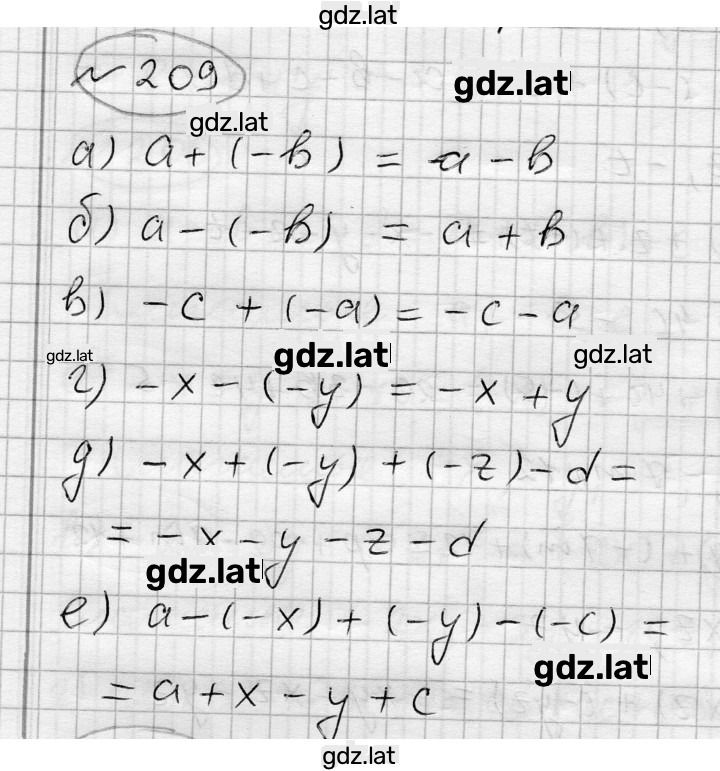 gdz.lat
№ 209
gdz.lat
gdz.lat
а) a + (-b) = a - b
б) a - (-b) = a + b
в) -c + (-a) = -c - a
gdz.lat gdz.lat gdz.lat
г) -x - (-y) = -x + y
д) -x + (-y) + (-z) - d =
= -x - y - z - d
gdz.lat
е) a - (-x) + (-y) - (-c) =
gdz.lat
= a + x - y + c
gdz.lat